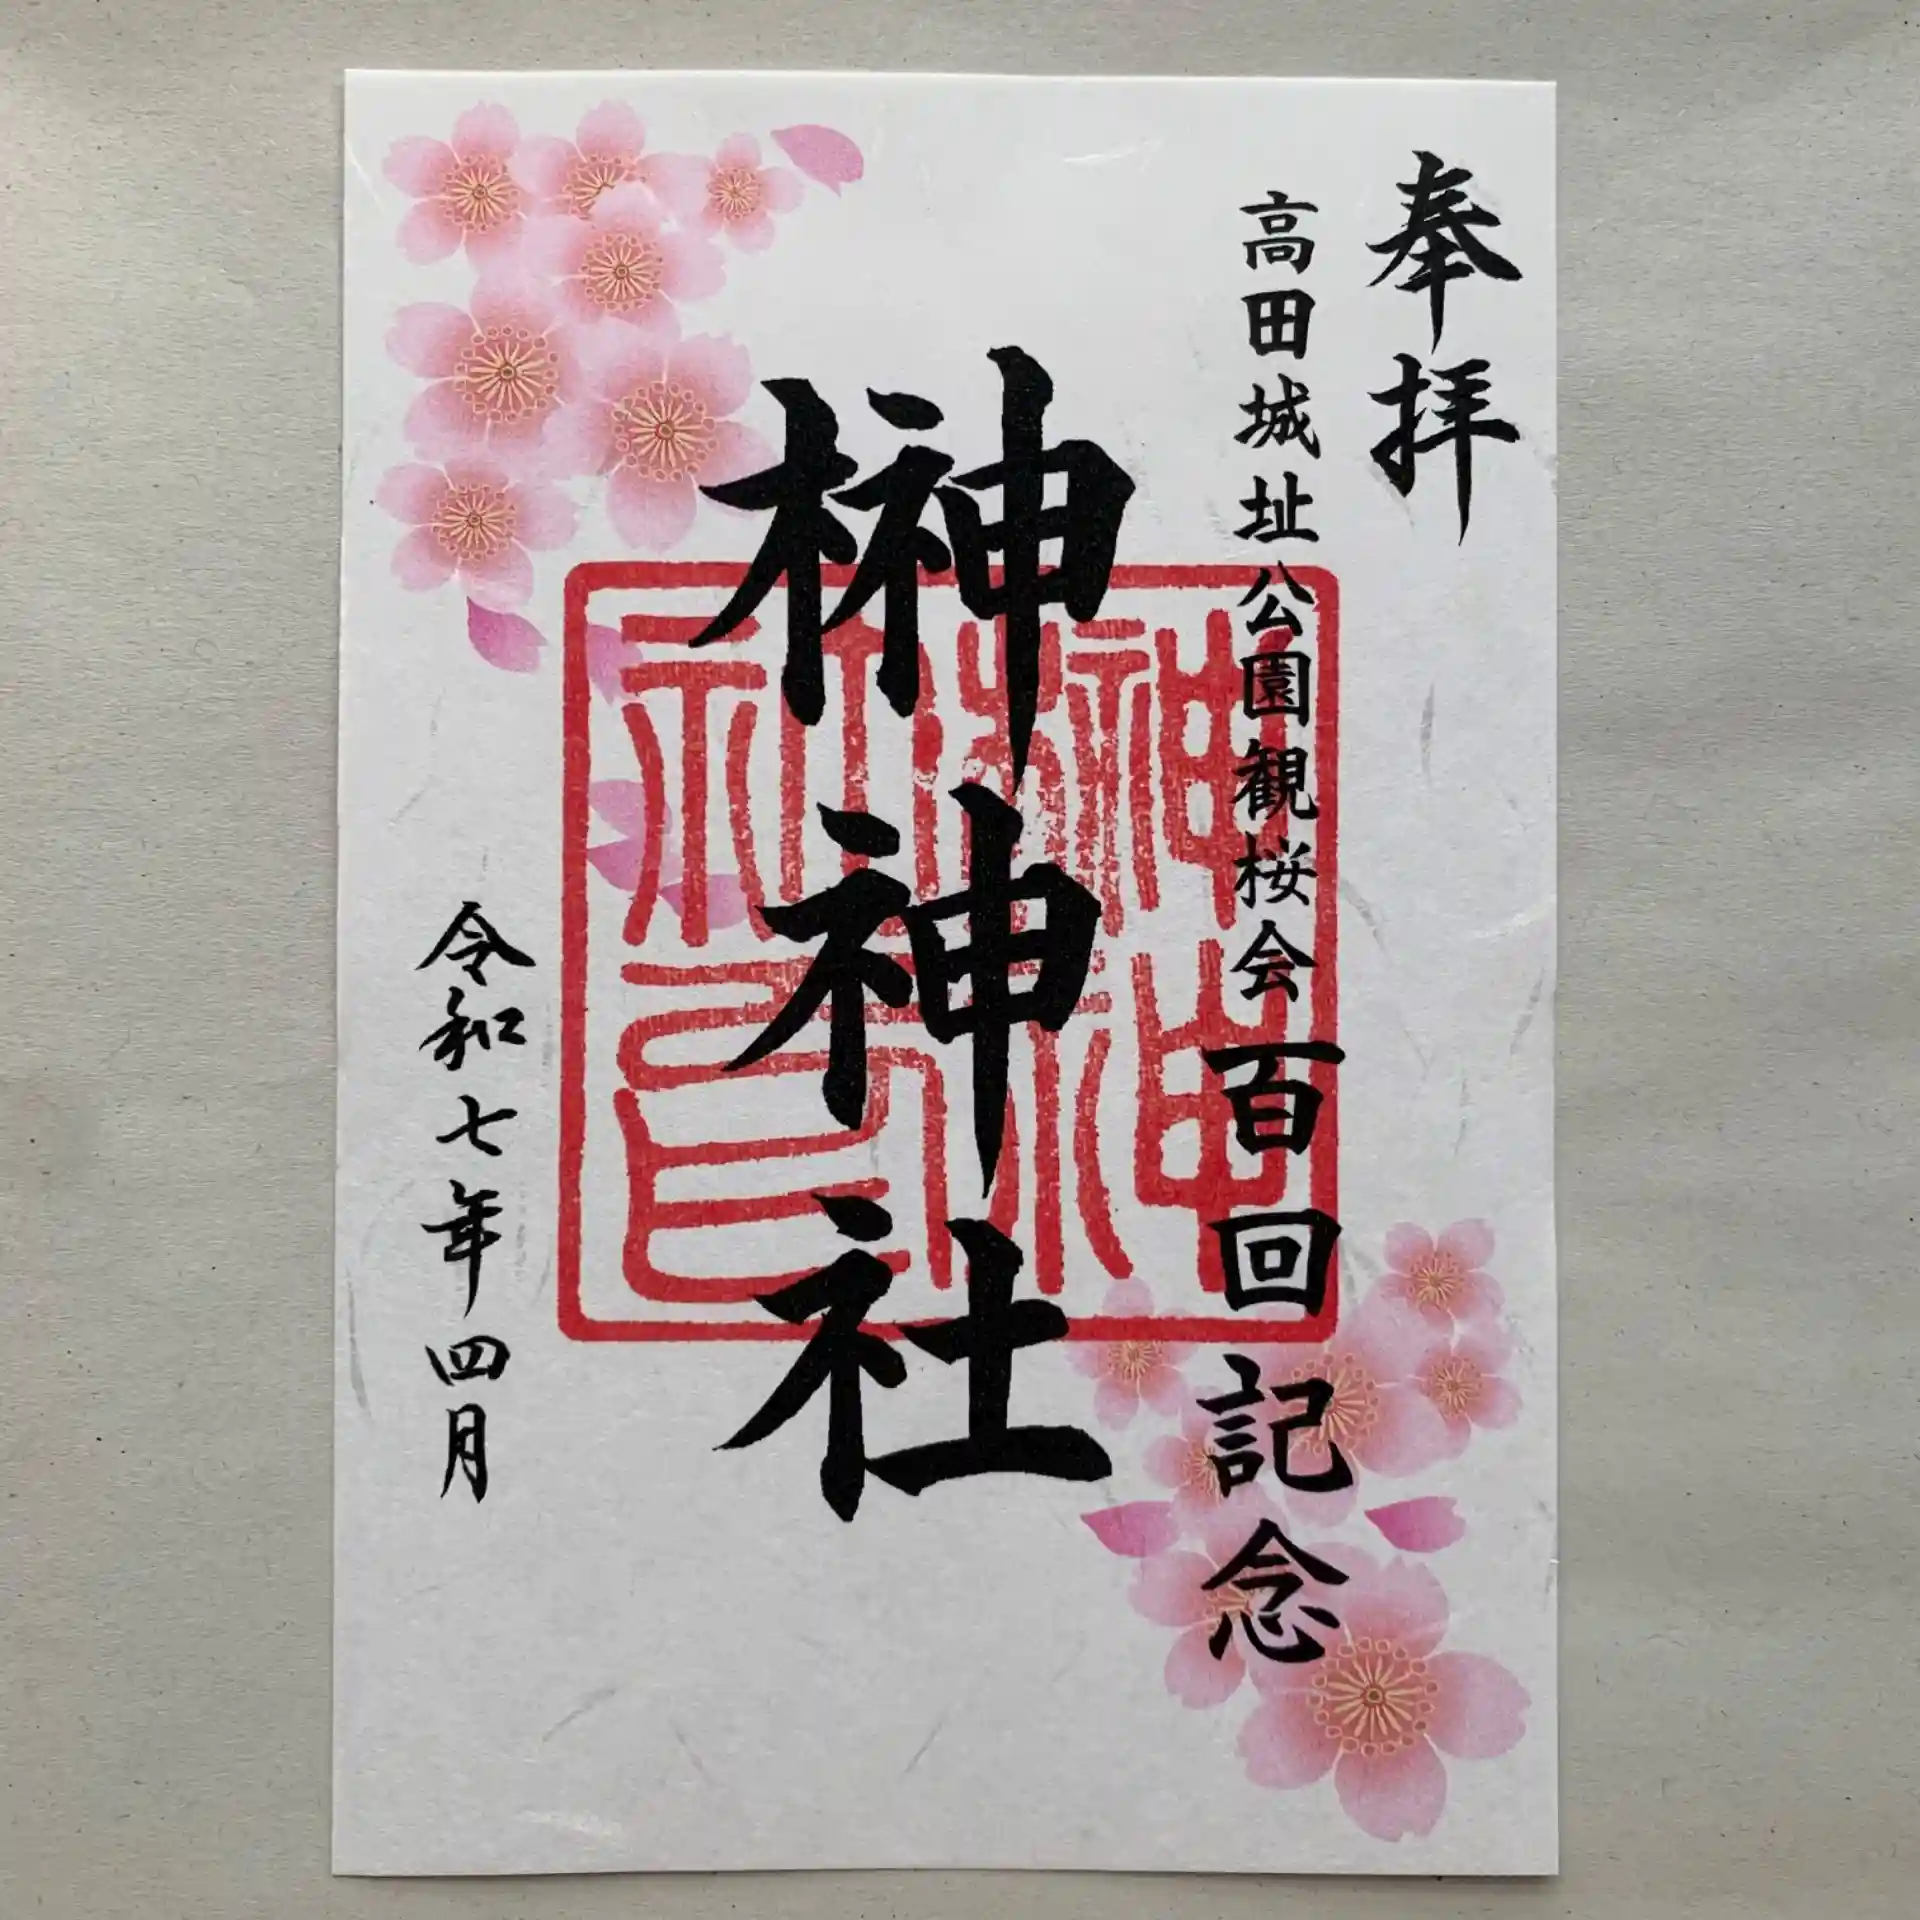 奉拝
高田城址公園観桜会百回記念
榊神社
榊神社印
令和七年四月